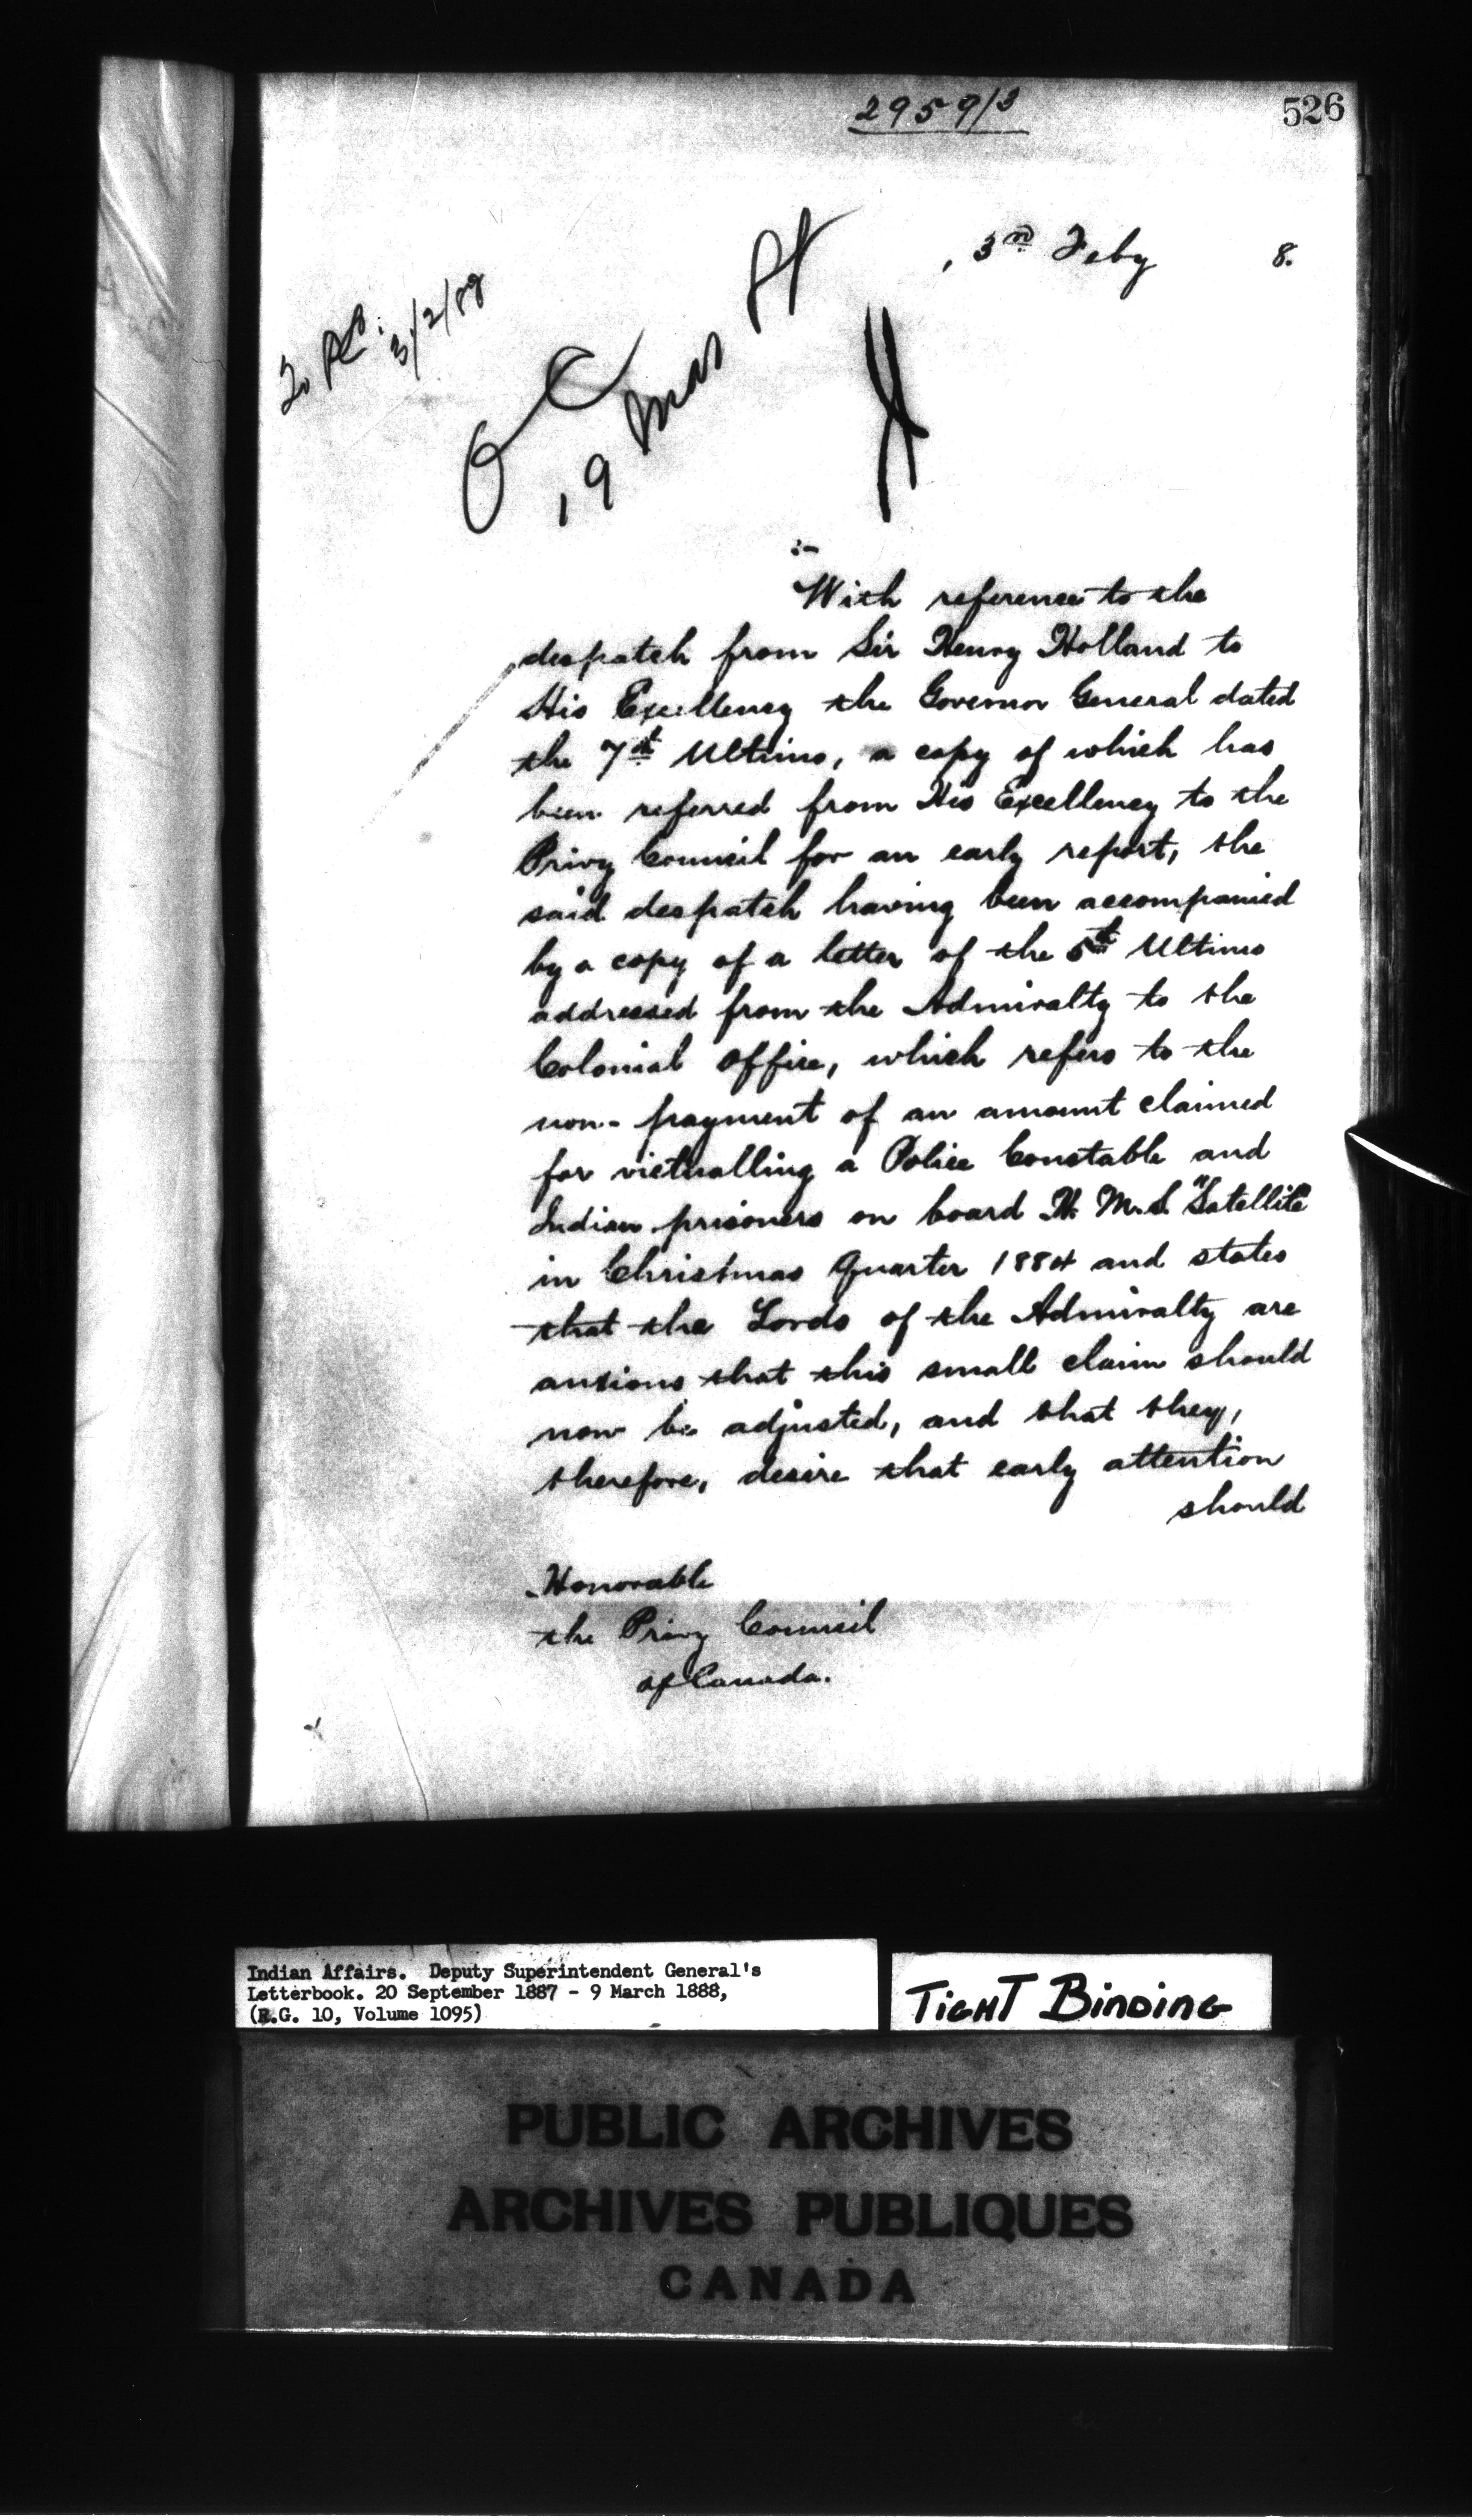 2959/3
526
, 3rd Feby 8.
To P.C.
3/2/88
O C
19 Mar
:-
With reference to the
despatch from Sir Henry Holland to
His Excellency the Governor General dated
the 7th Ultimo, a copy of which has
been referred from His Excellency to the
Privy Council for an early report, the
said despatch having been accompanied
by a copy of a letter of the 5th Ultimo
addressed from the Admiralty to the
Colonial Office, which refers to the
non-payment of an amount claimed
for victualling a Police Constable and
Indian prisoners on board H.M.S. "Satellite
in Christmas Quarter 1884 and states
that the Lords of the Admiralty are
anxious that this small claim should
now be adjusted, and that they,
therefore, desire that early attention
should
Honorable
the Privy Council
of Canada.
Indian Affairs. Deputy Superintendent General's
Letterbook. 20 September 1887 - 9 March 1888,
(R.G. 10, Volume 1095)
TIGHT BINDING
PUBLIC ARCHIVES
ARCHIVES PUBLIQUES
CANADA